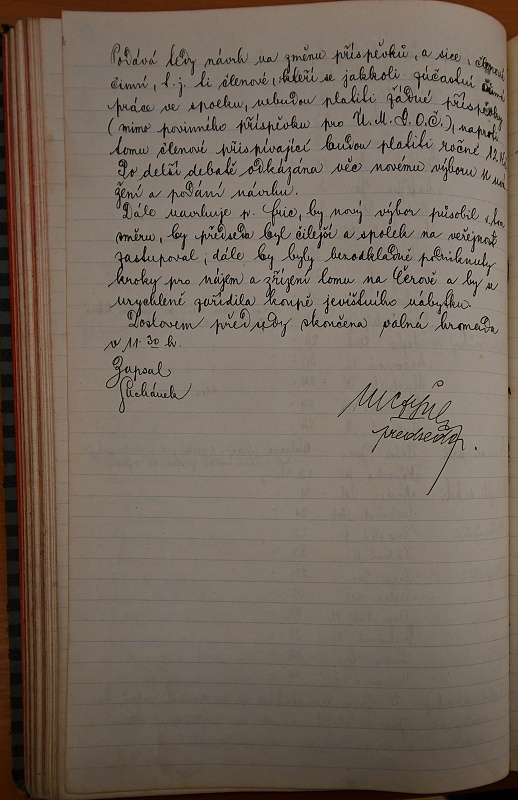 Podává tedy návrh na změnu příspěvků, a sice, členové
činní, t. j. ti členové, kteří se jakkoli zúčastní
práce ve spolku, nebudou platiti žádné příspěvky
(mimo povinného příspěvku pro Ú. M. D. O. Č.), naproti
tomu členové přispívající budou platiti ročně 12 Kč
Po delší debatě odkázána věc novému výboru k uvá
žení a podání návrhu.
Dále navrhuje p. Fric, by nový výbor působil v tom
směru, by předseda byl čilejší a spolek na veřejnost
zastupoval, dále by byly bezodkladně podniknuty
kroky pro nájem a zřízení lomu na Čerově a by se
urychleně zařídila koupě jevištního nábytku.
Doslovem předsedy skončena valná hromada
v 11 30 h.
Zapsal
Suchánek
předseda.